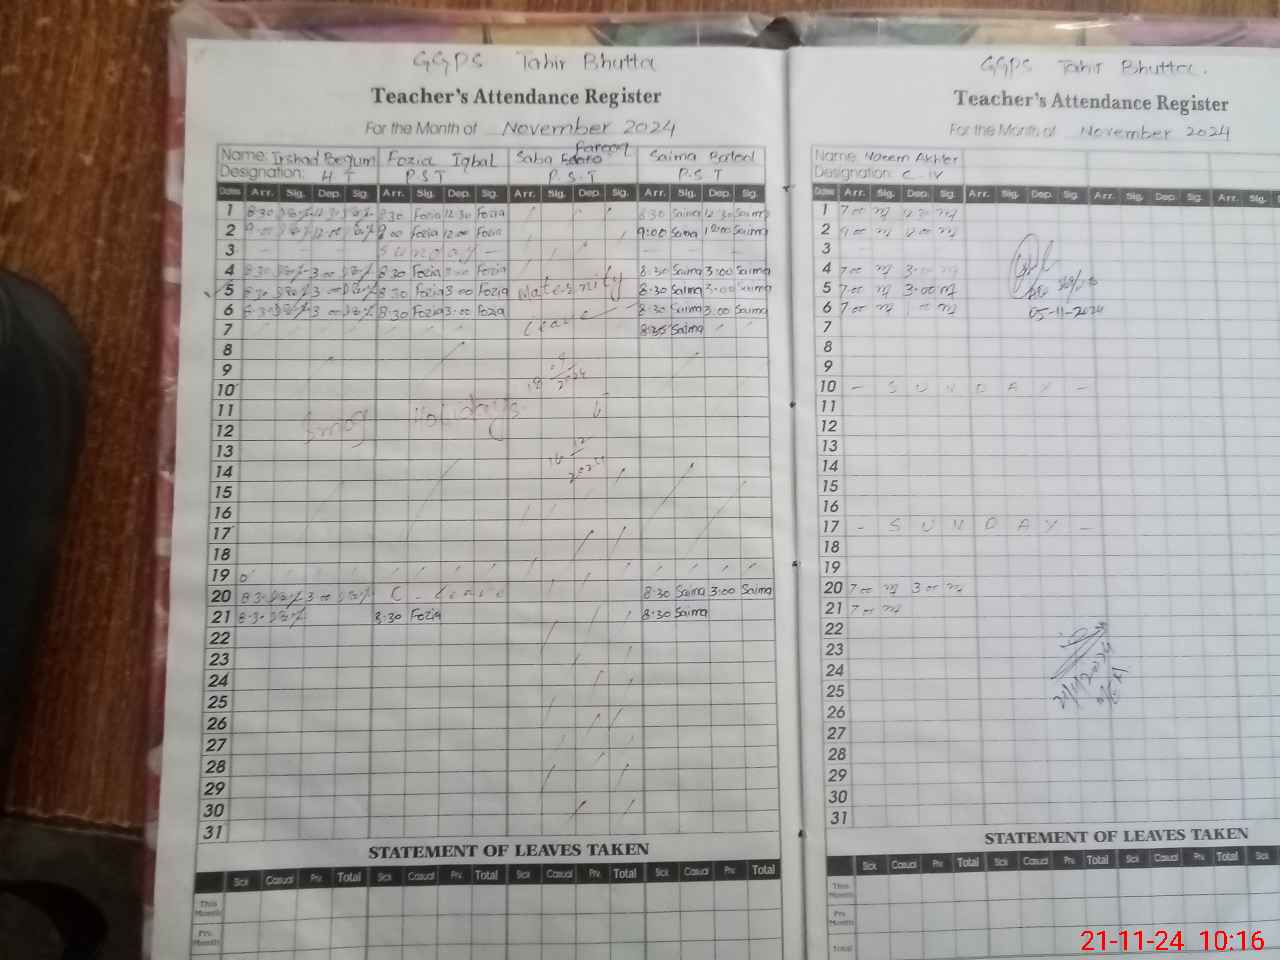 GGPS Tahir Bhutta
Teacher's Attendance Register
For the Month of November 2024
Name: Irshad Begum Fozia Iqbal Saba Farooq Saima Batool
Designation: H T P.S.T P.S.T P.S.T
Dates Arr. Sig. Dep. Sig. Arr. Sig. Dep. Sig. Arr. Sig. Dep. Sig. Arr. Sig. Dep. Sig.
1 8:30 12:30 8:30 Fozia 12:30 Fozia 8:30 Saima 12:30 Saima
2 9:00 12:00 9:00 Fozia 12:00 Fozia 9:00 Saima 12:00 Saima
3 — — Sunday — — —
4 8:30 3:00 8:30 Fozia 3:00 Fozia 8:30 Saima 3:00 Saima
5 8:30 3:00 8:30 Fozia 3:00 Fozia Maternity 8:30 Saima 3:00 Saima
6 8:30 3:00 8:30 Fozia 3:00 Fozia 8:30 Saima 3:00 Saima
7 Leave 8:35 Saima
8
9
10
11 Smog Holidays
12
13
14
15
16
17
18
19
20 8:30 3:00 C. Leave 8:30 Saima 3:00 Saima
21 8:30 8:30 Fozia 8:30 Saima
22
23
24
25
26
27
28
29
30
31
STATEMENT OF LEAVES TAKEN
Sick Casual Prv. Total Sick Casual Prv. Total Sick Casual Prv. Total Sick Casual Prv. Total
This Month
Prv. Month
GGPS Tahir Bhutta.
Teacher's Attendance Register
For the Month of November 2024
Name: Naeem Akhter
Designation: C IV
Dates Arr. Sig. Dep. Sig. Arr. Sig. Dep. Sig. Arr. Sig. Dep. Sig. Arr. Sig.
1 7:00 12:30
2 9:00 12:00
3
4 7:00 3:00
5 7:00 3:00
6 7:00
05-11-2024
7
8
9
10 - S U N D A Y -
11
12
13
14
15
16
17 - S U N D A Y -
18
19
20 7:00 3:00
21 7:00
22
23
24
21/11/2024
25
26
27
28
29
30
31
STATEMENT OF LEAVES TAKEN
Sick Casual Prv. Total Sick Casual Prv. Total Sick Casual Prv. Total Sick
This Month
Prv. Month
Total
21-11-24 10:16